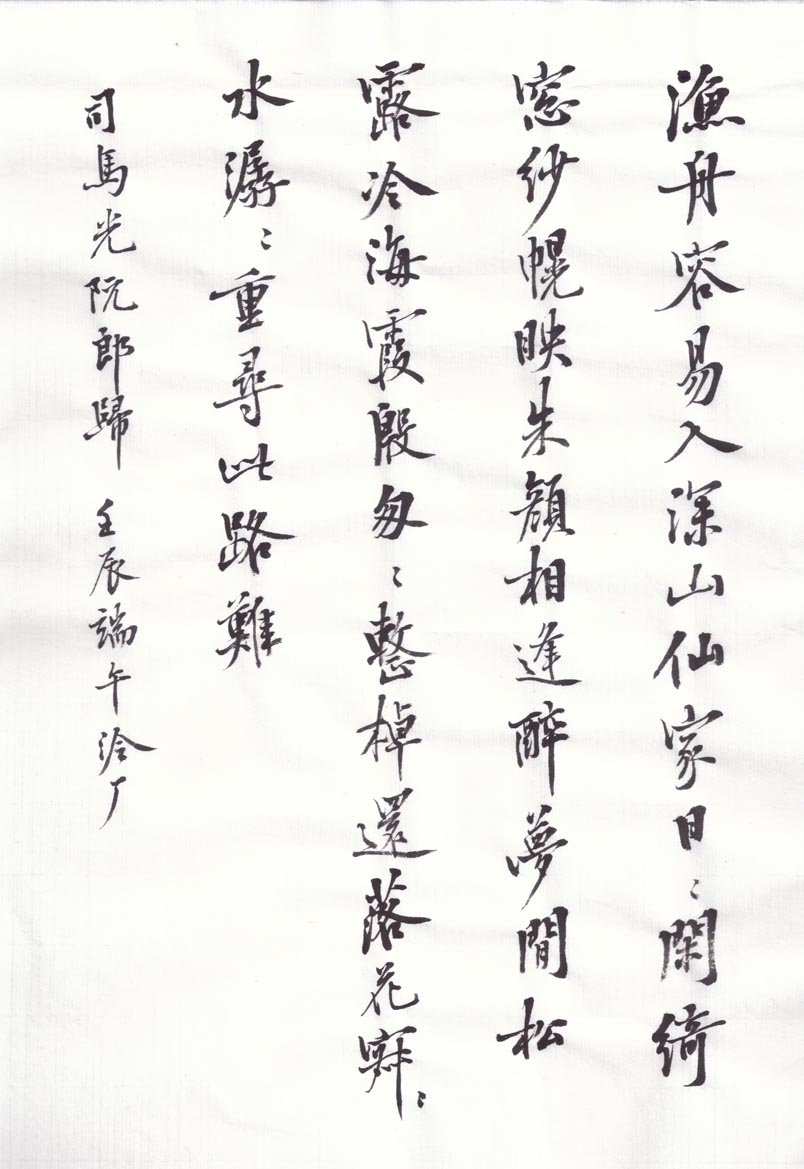 漁舟容易入深山仙家日〻閑綺
窓紗幌映朱顏相逢醉夢間松
露冷海霞殷匆〻整棹還落花寂〻
水潺〻重尋此路難
司馬光阮郎歸 壬辰端午泠厂